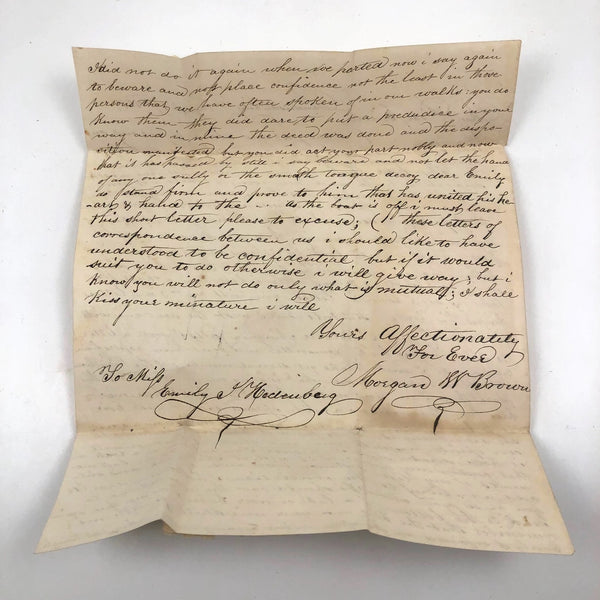 I did not do it again when we parted now i say again
to beware and not place confidence not the least in those
persons that we have often spoken of in our walks; you do
know them they did dare to put a predudice in your
way and in mine the deed was done and the dispo-
sition manifested but you did act your part nobly and now
that it has passed by still i say beware and not let the hand
of any one sully or the smooth tongue decoy dear Emily
so stand firm and prove to him that has united his he-
art & hand to the ... as the boat is off i must leave
this short letter please to excuse; ( these letters of
correspondence between us i should like to have
understood to be confidential but if it would
suit you to do otherwise i will give way; but i
know you will not do only what is mutual; i shall
Kiss your minature i will
Yours Affectionately
For Ever
Morgan W Brown
To Miss
Emily Hedenberg